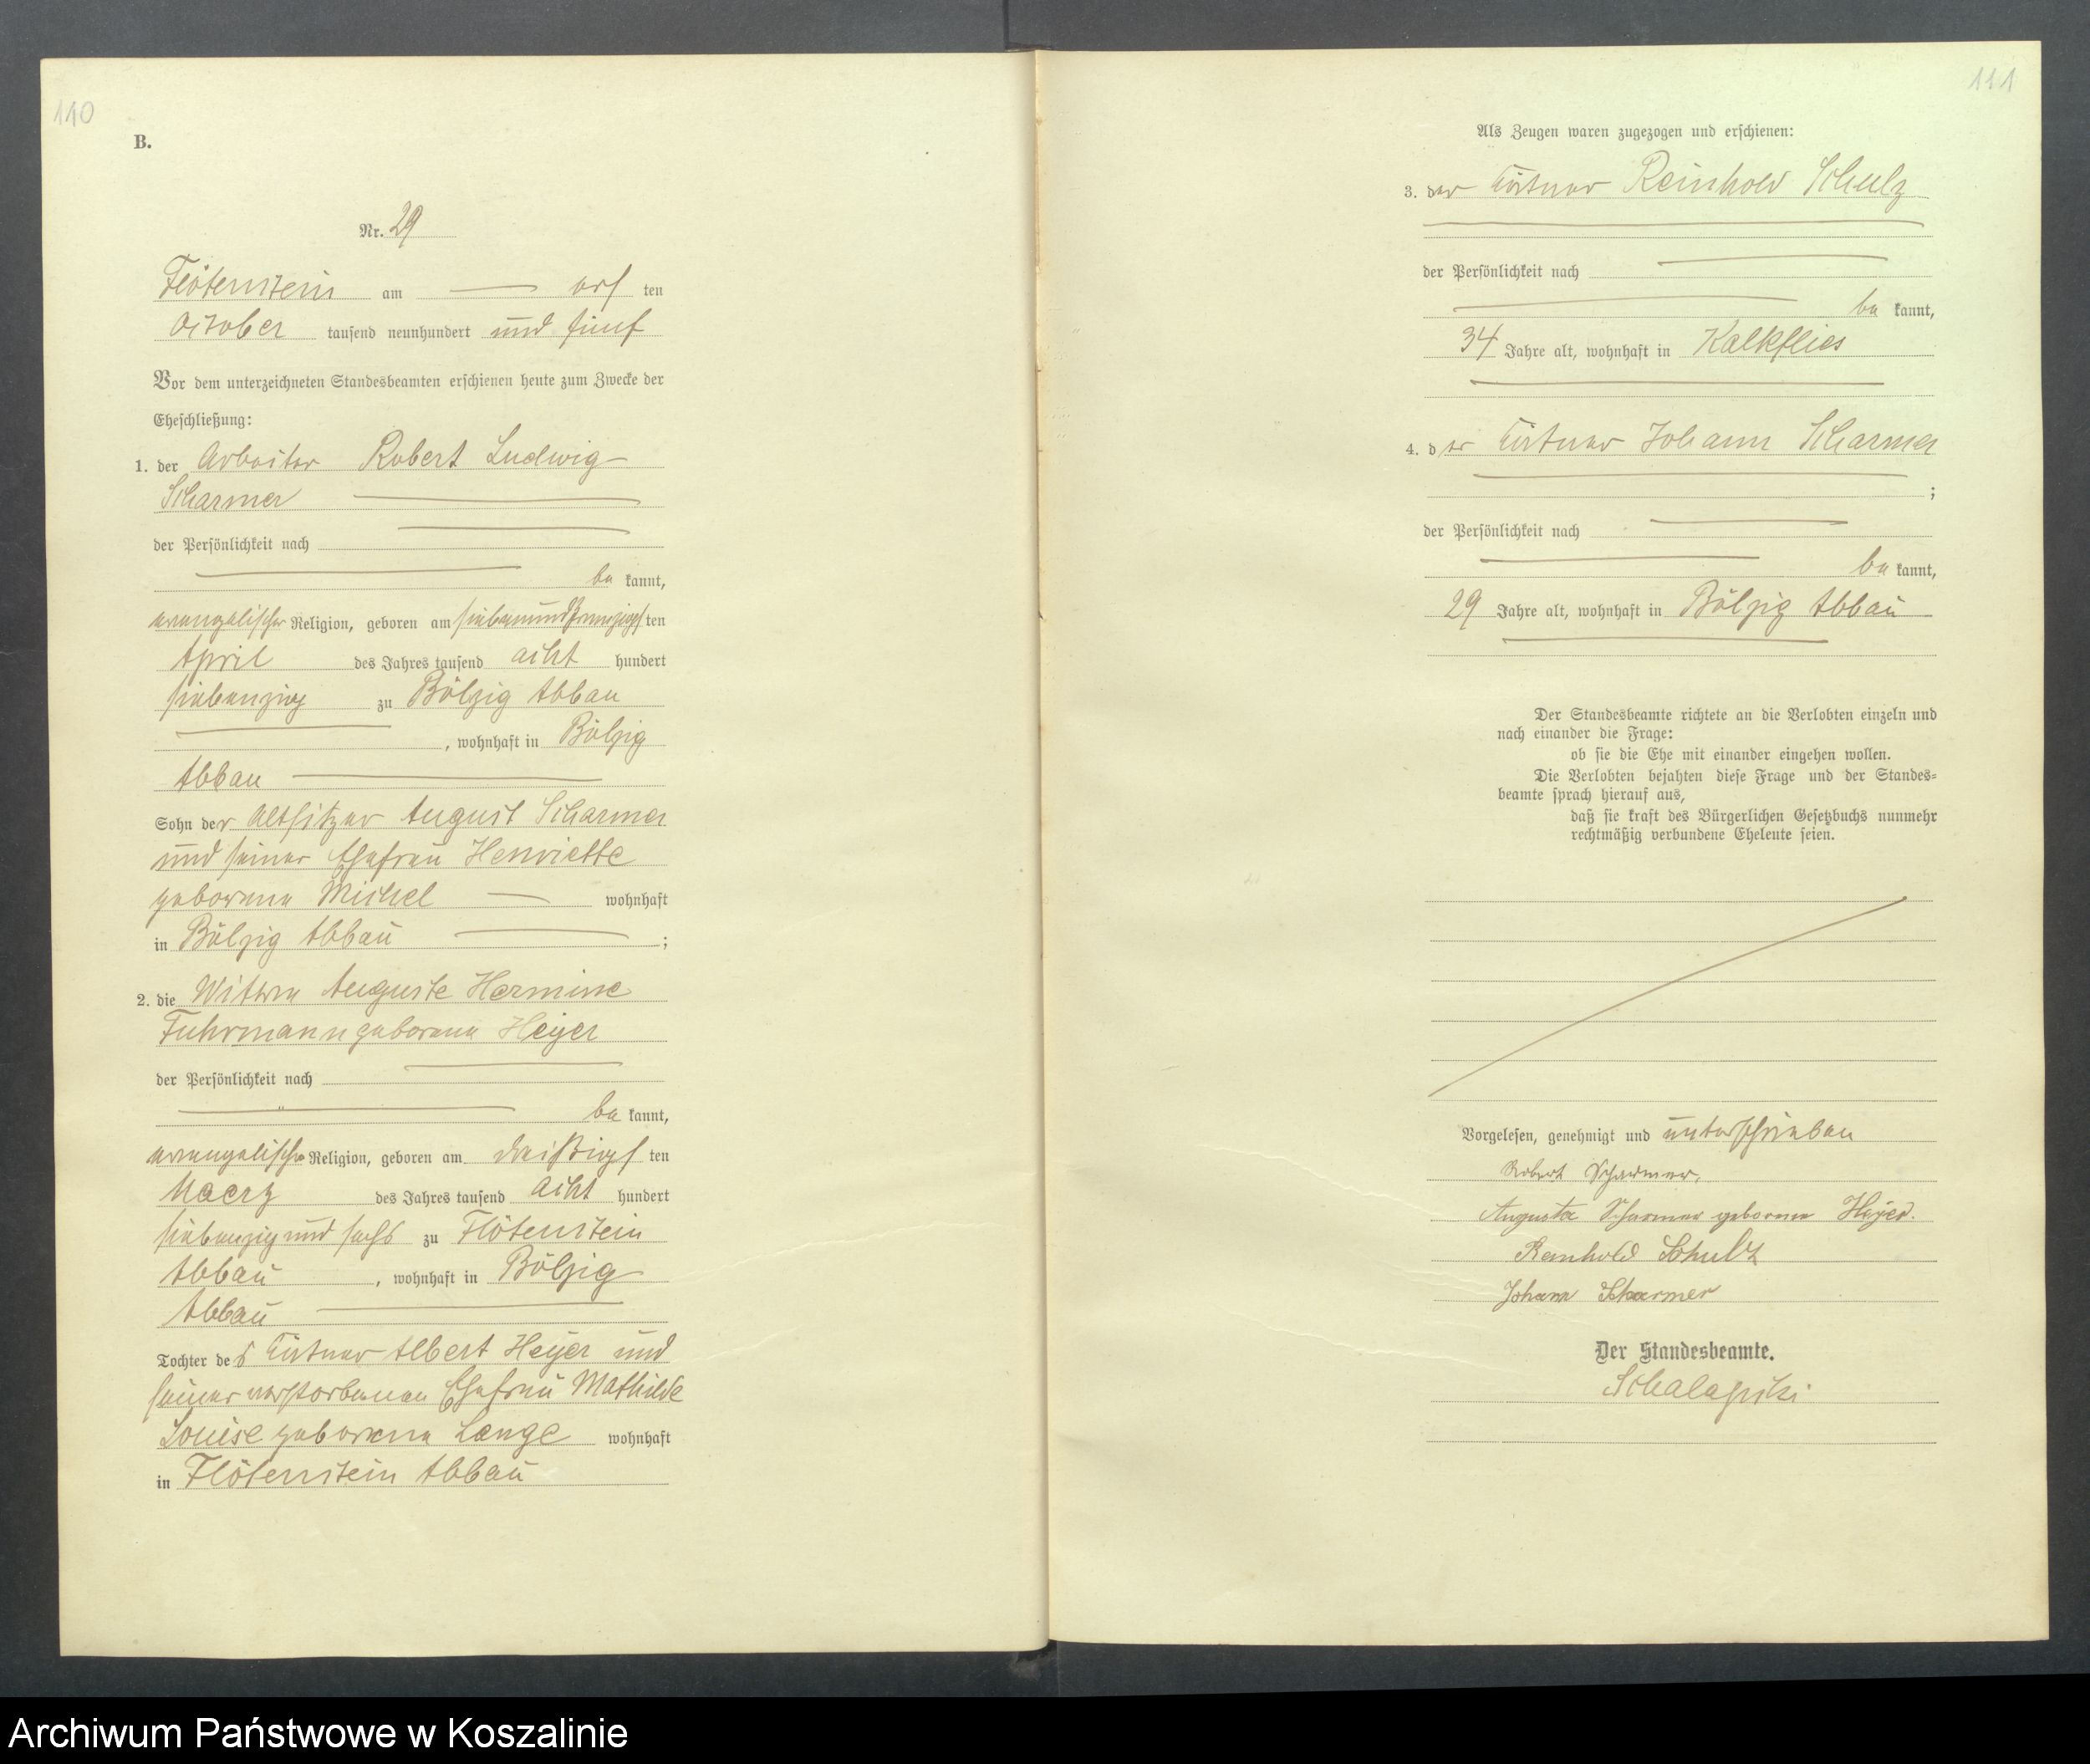 110
B.
Nr. 29
Flötenstein am ten
October tausend neunhundert und fünf
Vor dem unterzeichneten Standesbeamten erschienen heute zum Zwecke der
Eheschließung:
1. der Arbeiter Robert Ludwig
Scharmer
der Persönlichkeit nach
be kannt,
evangelischer Religion, geboren am siebenundzwanzigs ten
April des Jahres tausend acht hundert
siebenzig zu Bölzig Abbau
, wohnhaft in Bölzig
Abbau
Sohn der Altsitzer August Scharmer
und seiner Ehefrau Henriette
geborene Michel wohnhaft
in Bölzig Abbau ;
2. die Witwe Auguste Hermine
Fuhrmann geborene Heyer
der Persönlichkeit nach
be kannt,
evangelischer Religion, geboren am dreißigs ten
Maerz des Jahres tausend acht hundert
siebenzig und sechs zu Flötenstein
Abbau , wohnhaft in Bölzig
Abbau
Tochter des Eigentümer Albert Heyer und
seiner verstorbenen Ehefrau Mathilde
Louise geborene Lange wohnhaft
in Flötenstein Abbau
111
Als Zeugen waren zugezogen und erschienen:
3. der Reinhold Schulz
der Persönlichkeit nach
be kannt,
34 Jahre alt, wohnhaft in Kalkflies
4. der Johann Scharmer
;
der Persönlichkeit nach
be kannt,
29 Jahre alt, wohnhaft in Bölzig Abbau
Der Standesbeamte richtete an die Verlobten einzeln und
nach einander die Frage:
ob sie die Ehe mit einander eingehen wollen.
Die Verlobten bejahten diese Frage und der Standes-
beamte sprach hierauf aus,
daß sie kraft des Bürgerlichen Gesetzbuchs nunmehr
rechtmäßig verbundene Eheleute seien.
Vorgelesen, genehmigt und unterschrieben
Robert Scharmer.
Auguste Scharmer geborene Heyer.
Reinhold Schulz
Johann Scharmer
Der Standesbeamte.
Archiwum Państwowe w Koszalinie